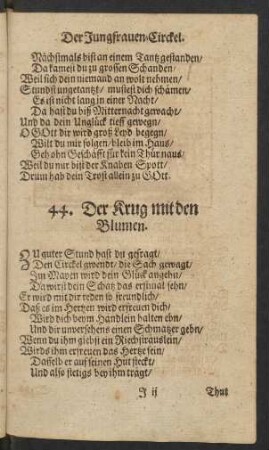 Der Jungfrauen-Circkel.
Nächstmals bist an einem Tantz gestanden/
Da kamest du zu grossen Schanden/
Weil sich dein niemand an wolt nehmen/
Stundst ungetantzt/ mustest dich schämen/
Es ist nicht lang in einer Nacht/
Da hast du biß Mitternacht gewacht/
Und da dein Unglück tieff gewegn/
O GOtt dir wird groß Leyd begegn/
Wilt du mir folgen/ bleib im Haus/
Geh ohn Geschäfft für kein Thür naus/
Weil du nur bist der Knaben Spott/
Drum hab dein Trost allein zu GOtt.
44. Der Krug mit den
Blumen.
ZU guter Stund hast du gefragt/
Den Circkel gwendt/ die Sach gewagt/
Im Mayen wird dein Glück angehn/
Da wirst dein Schatz das erstmal sehn/
Er wird mit dir reden so freundlich/
Daß es im Hertzen wird erfreuen dich/
Wird dich beym Händlein halten ebn/
Und dir unversehens einen Schmatzer gebn/
Wenn du ihm giebst ein Riechsträuslein/
Wirds ihm erfreuen das Hertze sein/
Dasselb er auf seinen Hut steckt/
Und also stetigs bey ihm trägt/
J ij
Thut